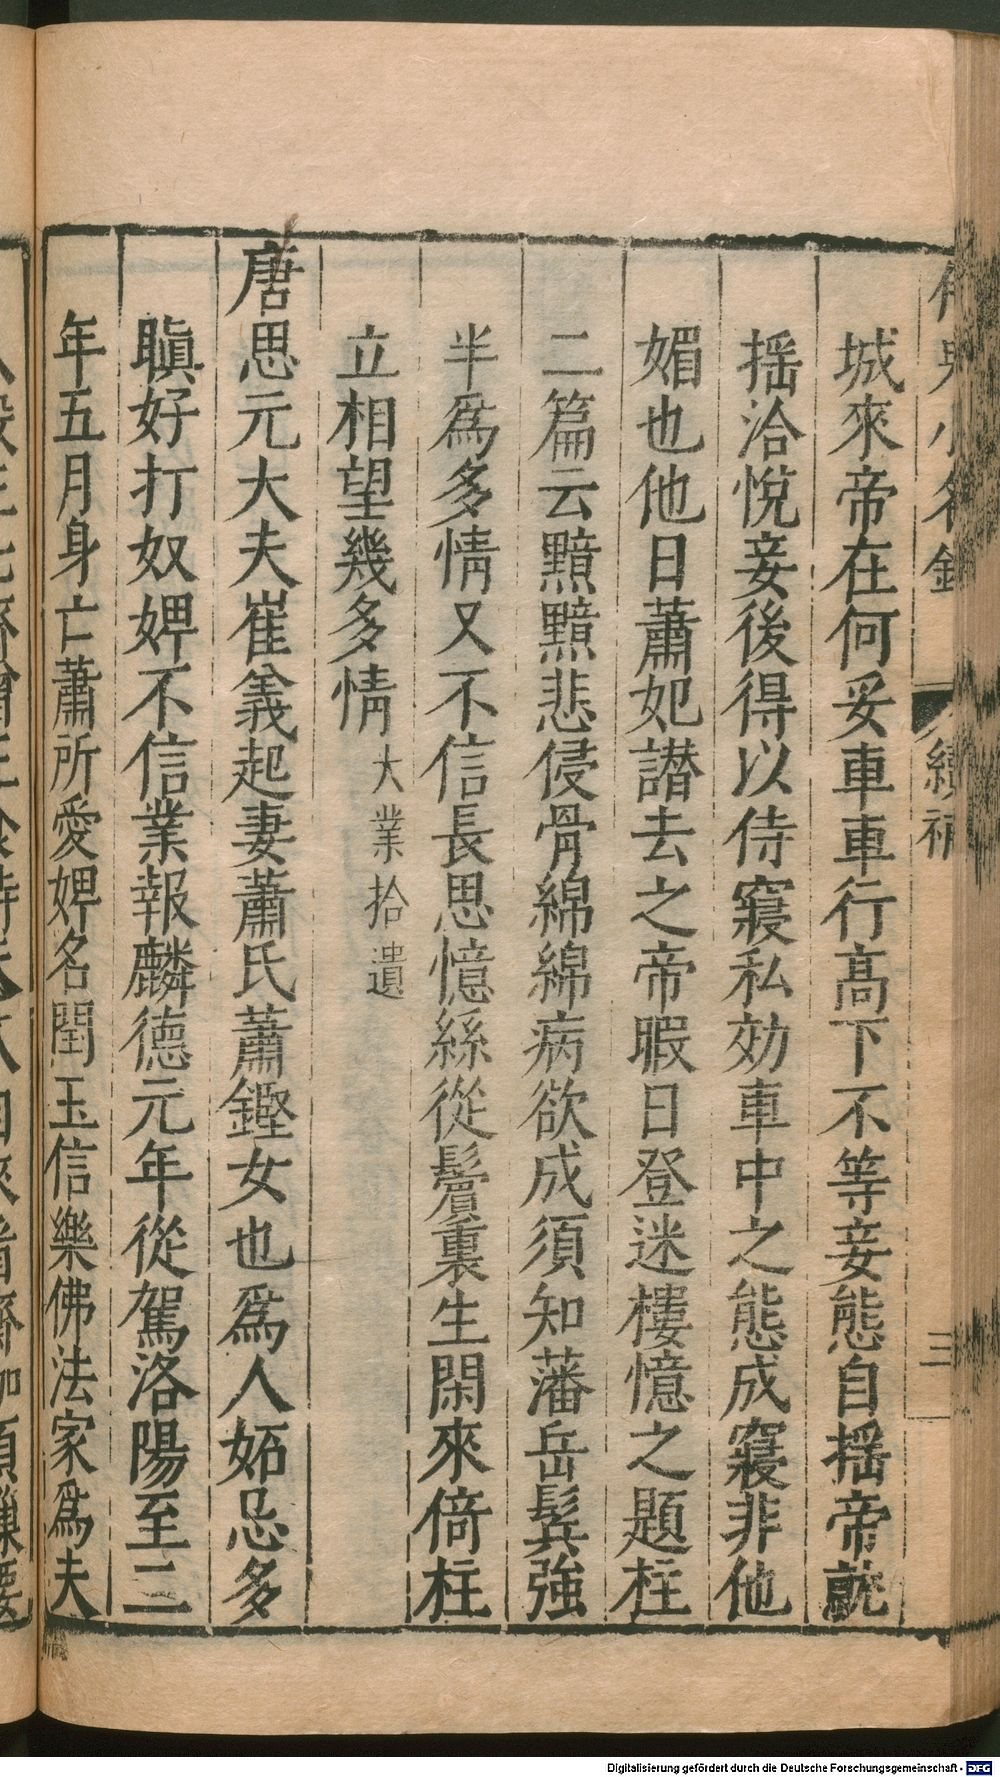 小名錄 續補 三
城來帝在何妥車車行高下不等妾態自搖帝就
搖洽悅妾後得以侍寢私効車中之態成寢非他
媚也他日蕭妃譖去之帝暇日登迷樓憶之題柱
二篇云黯黯悲侵骨綿綿病欲成須知藩岳鬂強
半爲多情又不信長思憶絲從鬢裏生閑來倚柱
立相望幾多情大業拾遺
唐思元大夫崔義起妻蕭氏蕭鏗女也爲人妬忌多
瞋好打奴婢不信業報麟德元年從駕洛陽至二
年五月身亡蕭所愛婢名閏玉信樂佛法家爲夫
Digitalisierung gefördert durch die Deutsche Forschungsgemeinschaft - DFG